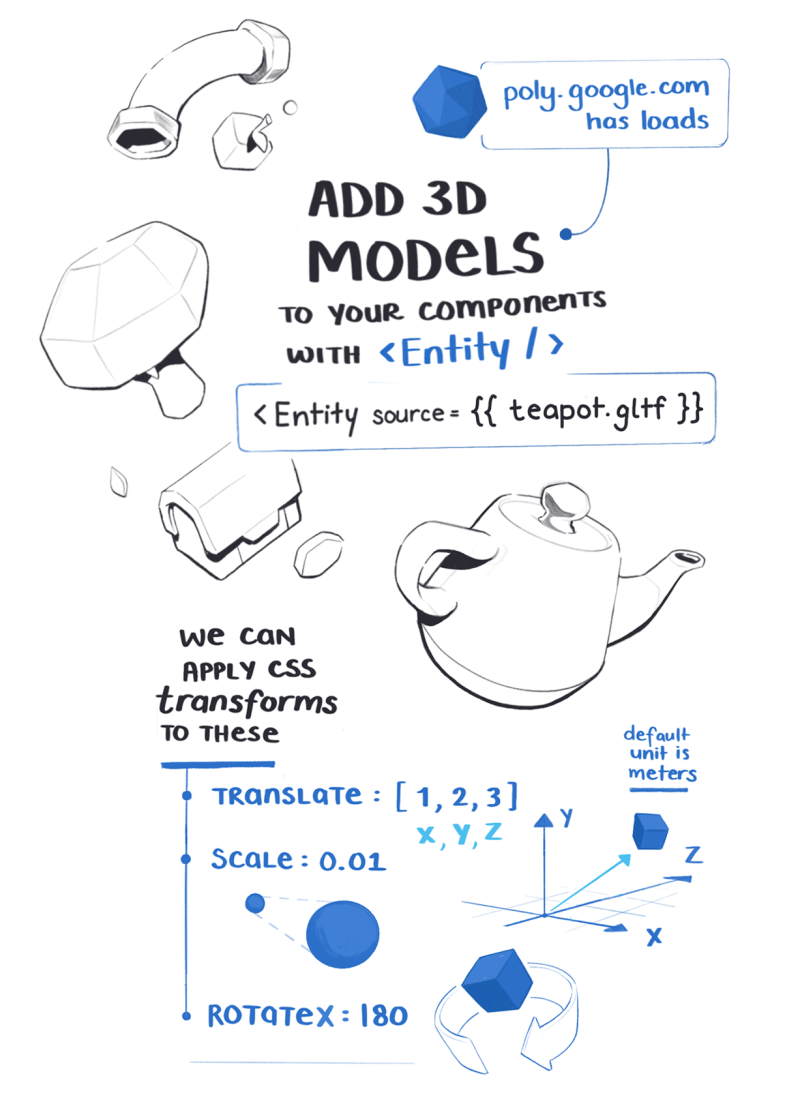 poly.google.com
has loads
ADD 3D
MODELS
TO YOUR COMPONENTS
WITH <Entity />
<Entity source = {{ teapot.gltf }}
We CAN
APPLY CSS
transforms
TO THese
TRANSLATE : [ 1, 2, 3 ]
X, Y, Z
SCALE : 0.01
ROTATEX : 180
default
unit is
meters
Y
Z
X